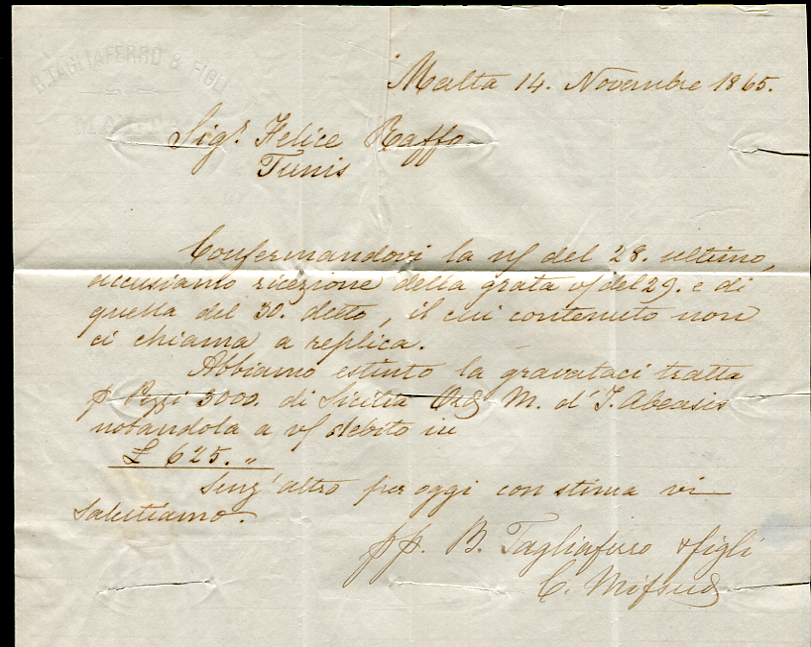 B. TAGLIAFERRO & FIGLI
MALTA
Malta 14. Novembre 1865.
Sigr. Felice Raffo
Tunis
Confermandovi la n/ del 28. ultimo,
accusiamo ricezione della grata v/ del 29. e di
quella del 30. detto, il cui contenuto non
ci chiama a replica.
Abbiamo estinto la gravataci tratta
p Pezzi 3000. di Sicilia Ord M. d' J. Abeasis
notandola a v/ debito in
£ 625. "
Senz' altro per oggi con stima vi
salutiamo.
pp. B. Tagliaferro & figli
C. Mifsud